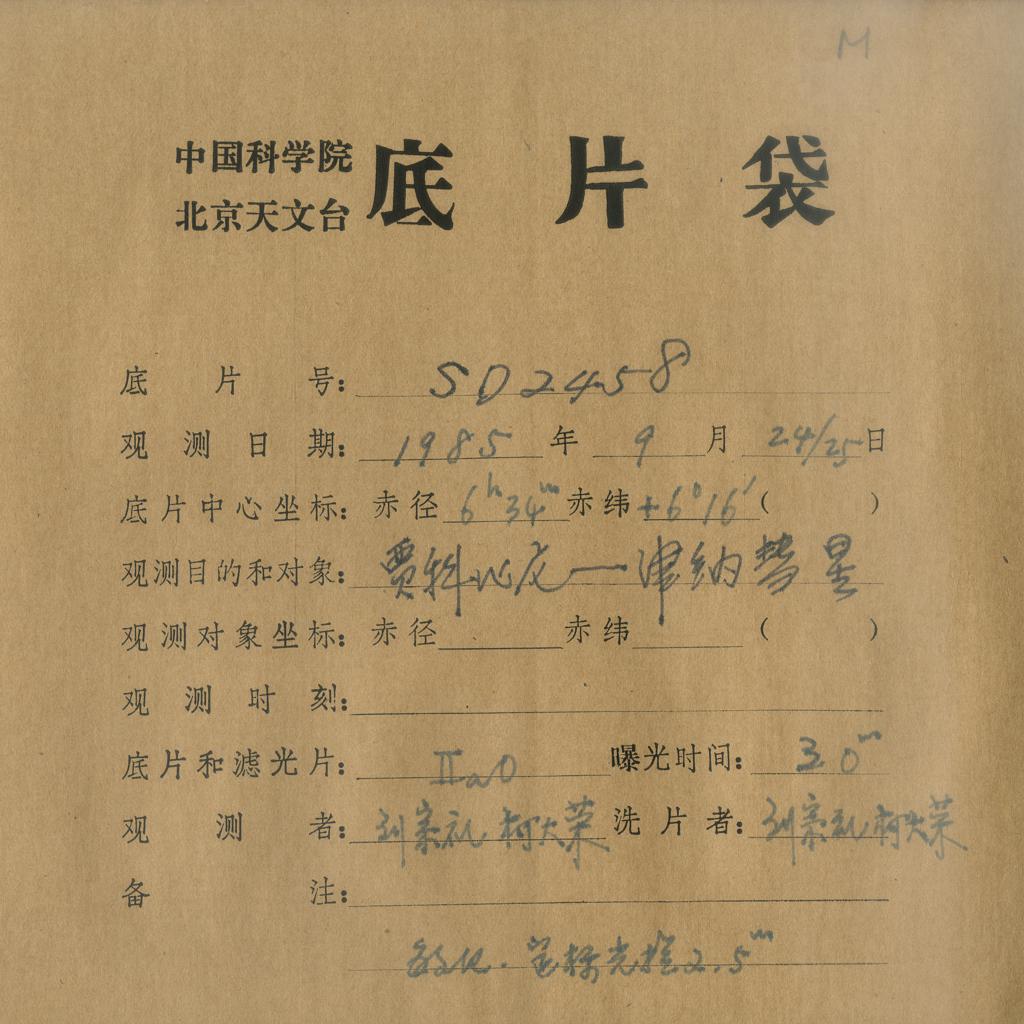 M
中国科学院
北京天文台
底片袋
底片号: SD2458
观测日期: 1985年9月24/25日
底片中心坐标: 赤径 6h34m 赤纬 +6°16′( )
观测目的和对象: 贾科比尼一津纳彗星
观测对象坐标: 赤径 赤纬 ( )
观测时刻:
底片和滤光片: IIaO 曝光时间: 30m
观测者: 刘宗礼 柯大荣 洗片者: 刘宗礼 柯大荣
备注:
敏化. 光 2.5m